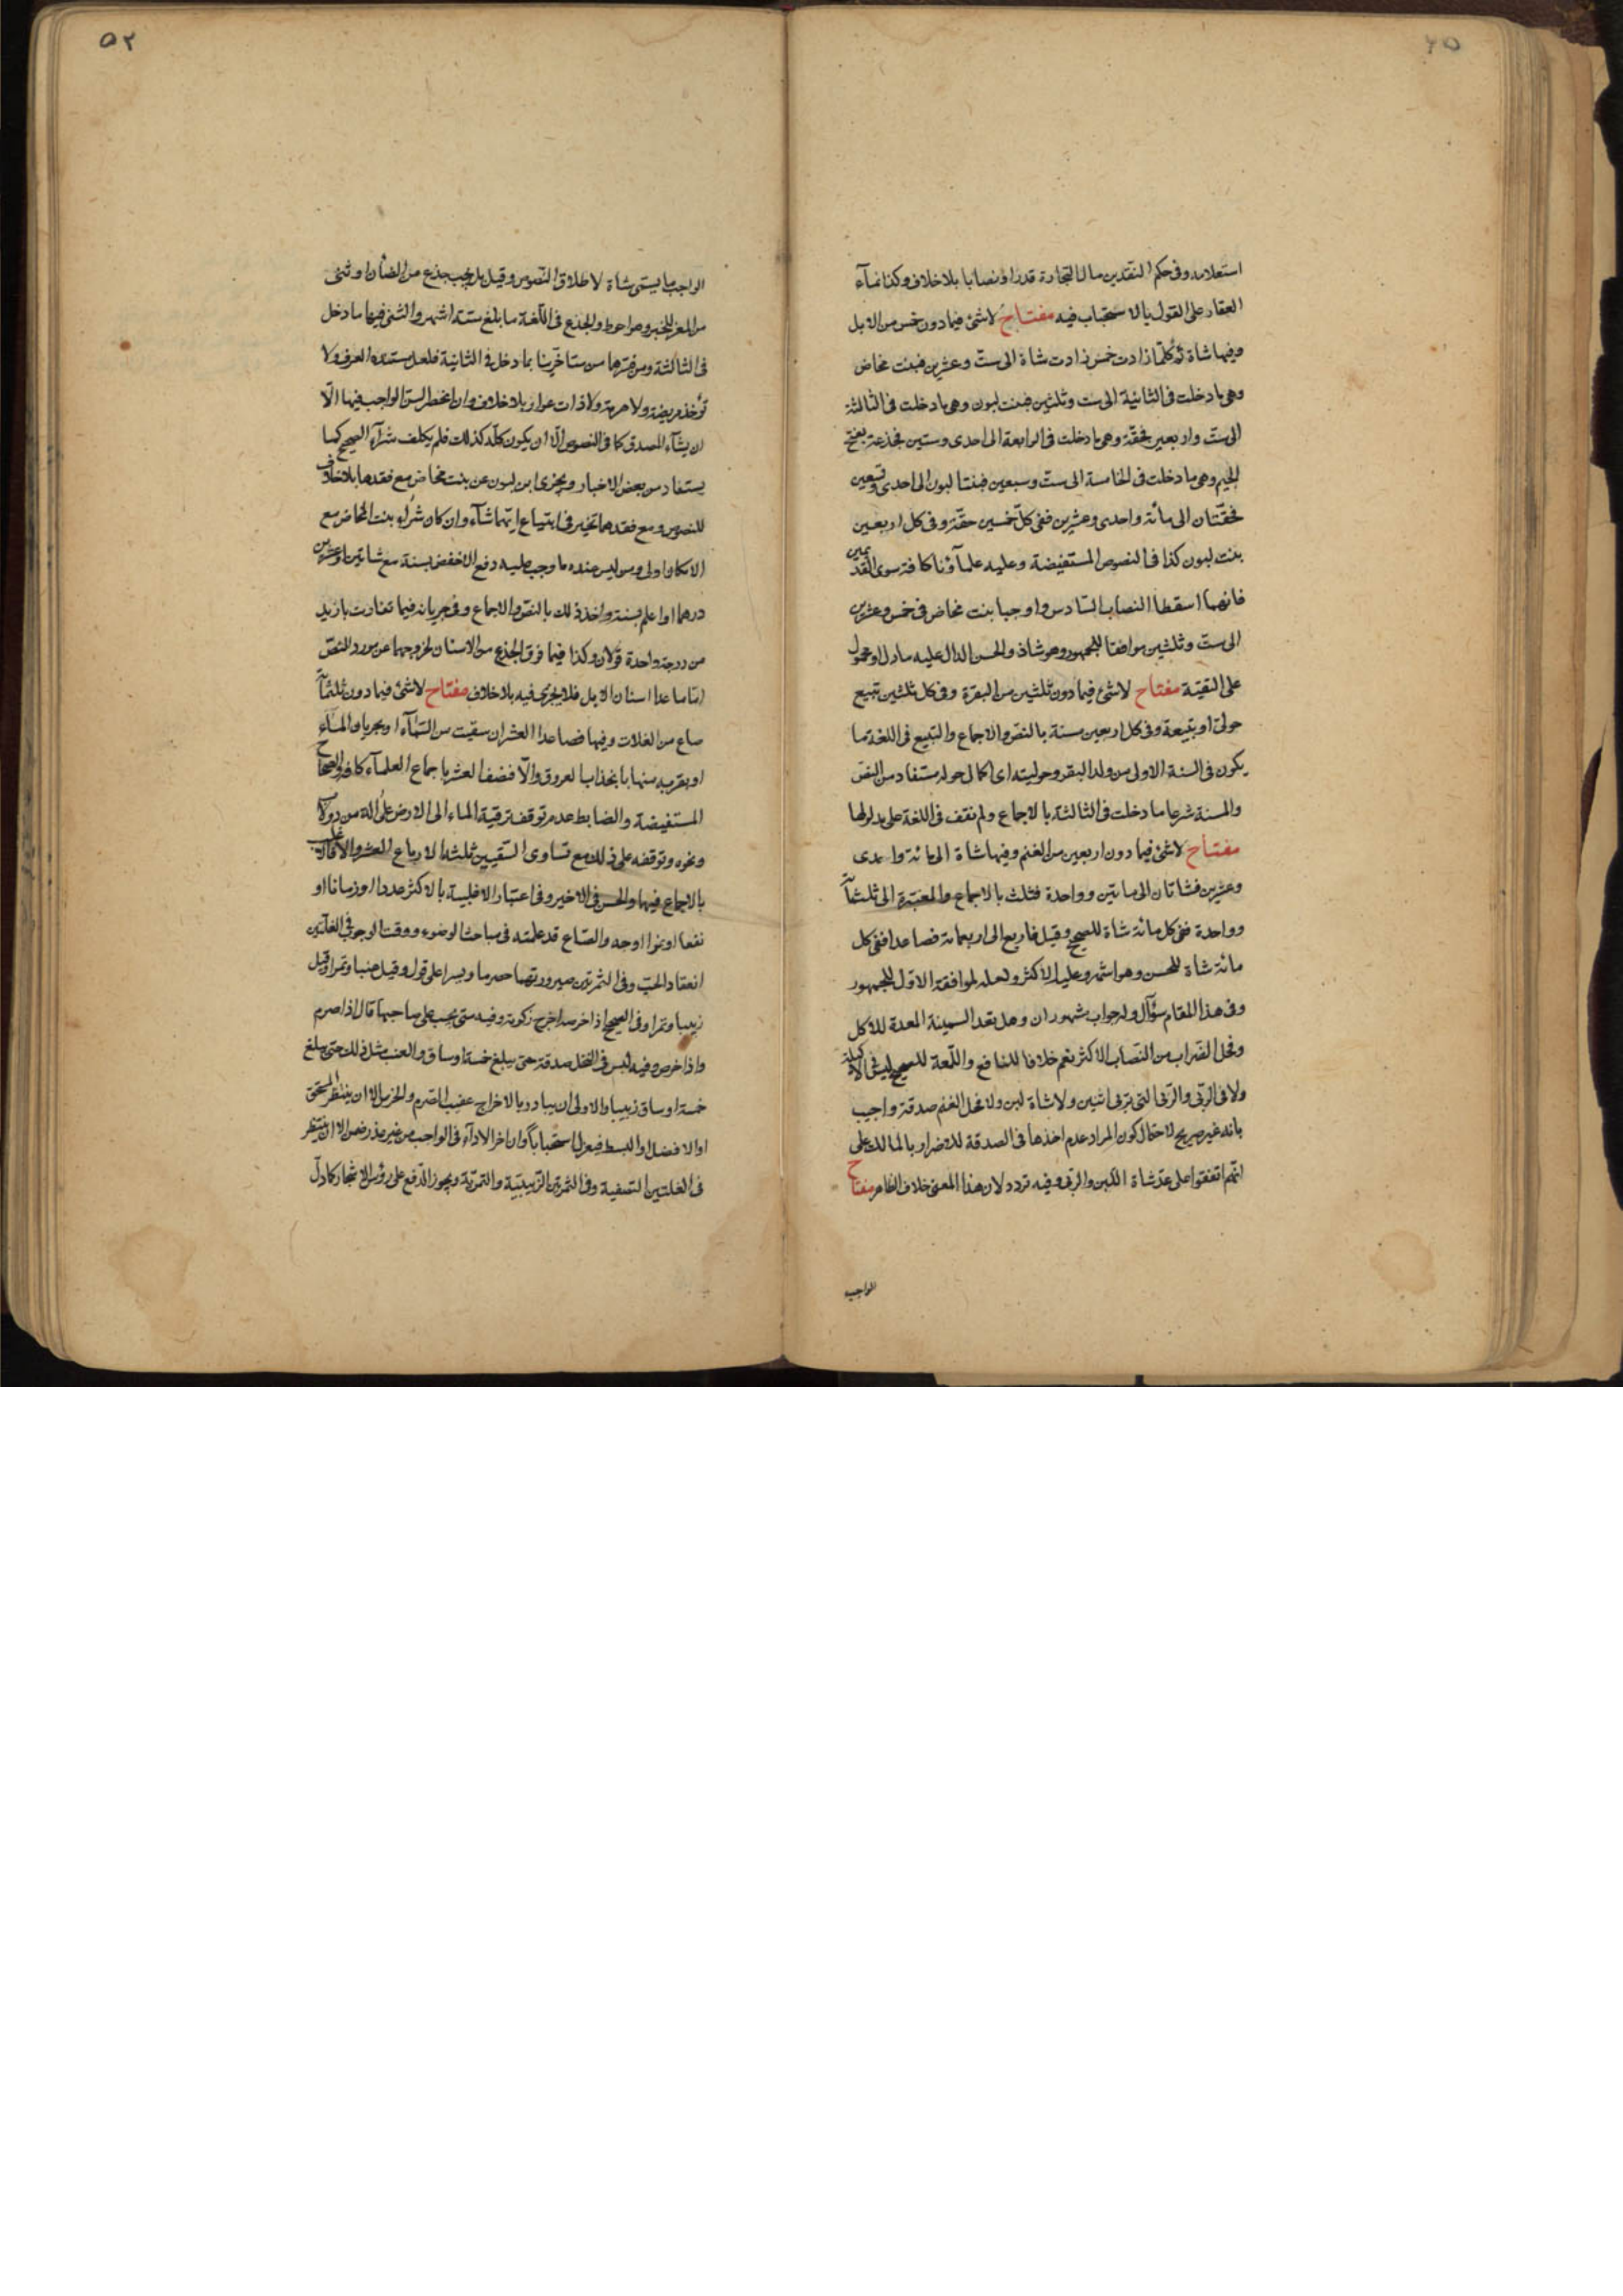 استعلامه وفى حكم النقدين مال التجارة قدرا ونصابا بلا خلاف وكذا نمآء
العقار على القول بالاستحباب فيه مفتاح لا شئ فيما دون خمس من الابل
وفيها شاة ثم كلما زادت خمس زادت شاة الى ست وعشرين فبنت مخاض
وهى ما دخلت فى الثانية الى ست وثلثين فبنت لبون وهى ما دخلت فى الثالثة
الى ست واربعين فحقة وهى ما دخلت فى الرابعة الى احدى وستين فجذعة بفتح
الجيم وهى ما دخلت فى الخامسة الى ست وسبعين فبنتا لبون الى احدى وتسعين
فحقتان الى مائة واحدى وعشرين ففى كل خمسين حقة وفى كل اربعين
بنت لبون كذا فى النصوص المستفيضة وعليه علمآؤنا كافة سوى القديمين
فانهما اسقطا النصاب السادس واوجبا بنت مخاض فى خمس وعشرين
الى ست وثلثين موافقا للجمهور وهو شاذ والحسن الدال عليه مأول او محمول
على التقية مفتاح لا شئ فيما دون ثلثين من البقرة وفى كل ثلثين تبيع
حولى او تبيعة وفى كل اربعين مسنة بالنص والاجماع والتبيع فى اللغة ما
يكون فى السنة الاولى من ولد البقر وحوليته اى اكمال حوله مستفاد من النص
والمسنة شرعا ما دخلت فى الثالثة بالاجماع ولم نقف فى اللغة على مدلولها
مفتاح لا شئ فيما دون اربعين من الغنم وفيها شاة الى مائة واحدى
وعشرين فشاتان الى مأتين وواحدة فثلث بالاجماع والمعتبرة الى ثلثمائة
وواحدة ففى كل مائة شاة للصحيح وقيل فاربع الى اربعمائة فصاعدا ففى كل
مائة شاة للحسن وهو اشهر وعليه الاكثر ولعله لموافقة الاول للجمهور
وفى هذا المقام سؤال وله جواب مشهوران وهل تعد السمينة المعدة للاكل
وفحل الضراب من النصاب الاكثر نعم خلافا للنافع واللمعة للصحيح ليس فى الاكيلة
ولا فى الربى والربى التى تربى اثنين ولا شاة لبن ولا فحل الغنم صدقة واجيب
بانه غير صريح لاحتمال كون المراد عدم اخذها فى الصدقة للاضرار بالمالك على
انهم اتفقوا على عد شاة اللبن والربى وفيه تردد لان هذا المعنى خلاف الظاهر مفتاح
الواجب
٥٢
الواجب ما يسمى شاة لاطلاق النصوص وقيل بل يجب جذع من الضأن او ثنى
من المعز للخبر وهو احوط والجذع فى اللغة ما بلغ ستة اشهر والثنى فيها ما دخل
فى الثالثة ومن فسرهما من متأخرينا بما دخل فى الثانية فلعل مستنده العرف ولا
تؤخذ مريضة ولا هرمة ولا ذات عوار بلا خلاف وان انحصر السن الواجب فيها الا
ان يشآء المصدق كما فى النصوص الا ان يكون كله كذلك فلم يكلف شرآء الصحيح كما
يستفاد من بعض الاخبار ويجزى ابن لبون عن بنت مخاض مع فقدها بلا خلاف
للنصوص ومع فقدهما تخير فى ابتياع ايهما شآء وان كان شراء بنت المخاض مع
الامكان اولى ومن ليس عنده ما وجب عليه دفع الاخفض بسنة مع شاتين او عشرين
درهما او اعلم بسنة واخذ ذلك بالنص والاجماع وفى جريانه فيما تفاوت بازيد
من درجة واحدة قولان وكذا فيما فوق الجذع من الاسنان لخروجهما عن مورد النص
اما ما عدا اسنان الابل فلا يجزى فيه بلا خلاف مفتاح لا شئ فيما دون ثلثمائة
صاع من الغلات وفيها فصاعدا العشر ان سقيت من السمآء او بجريان المآء
او بقربه منها بانجذاب العروق والا فنصف العشر باجماع العلمآء كافة والصحاح
المستفيضة والضابط عدم توقف ترقية الماء الى الارض على آلة من دولاب
ونحوه وتوقفه على ذلك مع تساوى السقيين ثلثة الارباع العشر والا فالاغلب
بالاجماع فيهما والحسن فى الاخير وفى اعتبار الاغلبية بالاكثر عددا او زمانا او
نفعا او نموا اوجه والصاع قد علمته فى مباحث الوضوء ووقت الوجوب فى الغلتين
انعقاد الحب وفى الثمرتين صيرورتهما حصرما وبسرا على قول وقيل عنبا وتمرا وقيل
زبيبا وتمرا وفى الصحيح اذا خرصه اخرج زكوته وفيه متى يجب على صاحبها قال اذا صرم
واذا خرص وفيه ليس فى النخل صدقة حتى يبلغ خمسة اوساق والعنب مثل ذلك حتى يبلغ
خمسة اوساق زبيبا والاولى ان يبادر بالاخراج عقيب الصرم والخرص الا ان ينتظر المستحق
او الافضل او البسط فيعزلها استحبابا وان اخر الادآء فى الواجب من غير عذر ضمن الا ان ينتظر
فى الغلتين التصفية وفى الثمرتين الزبيبية والتمرية ويجوز الدفع على رؤس الاشجار كما دل